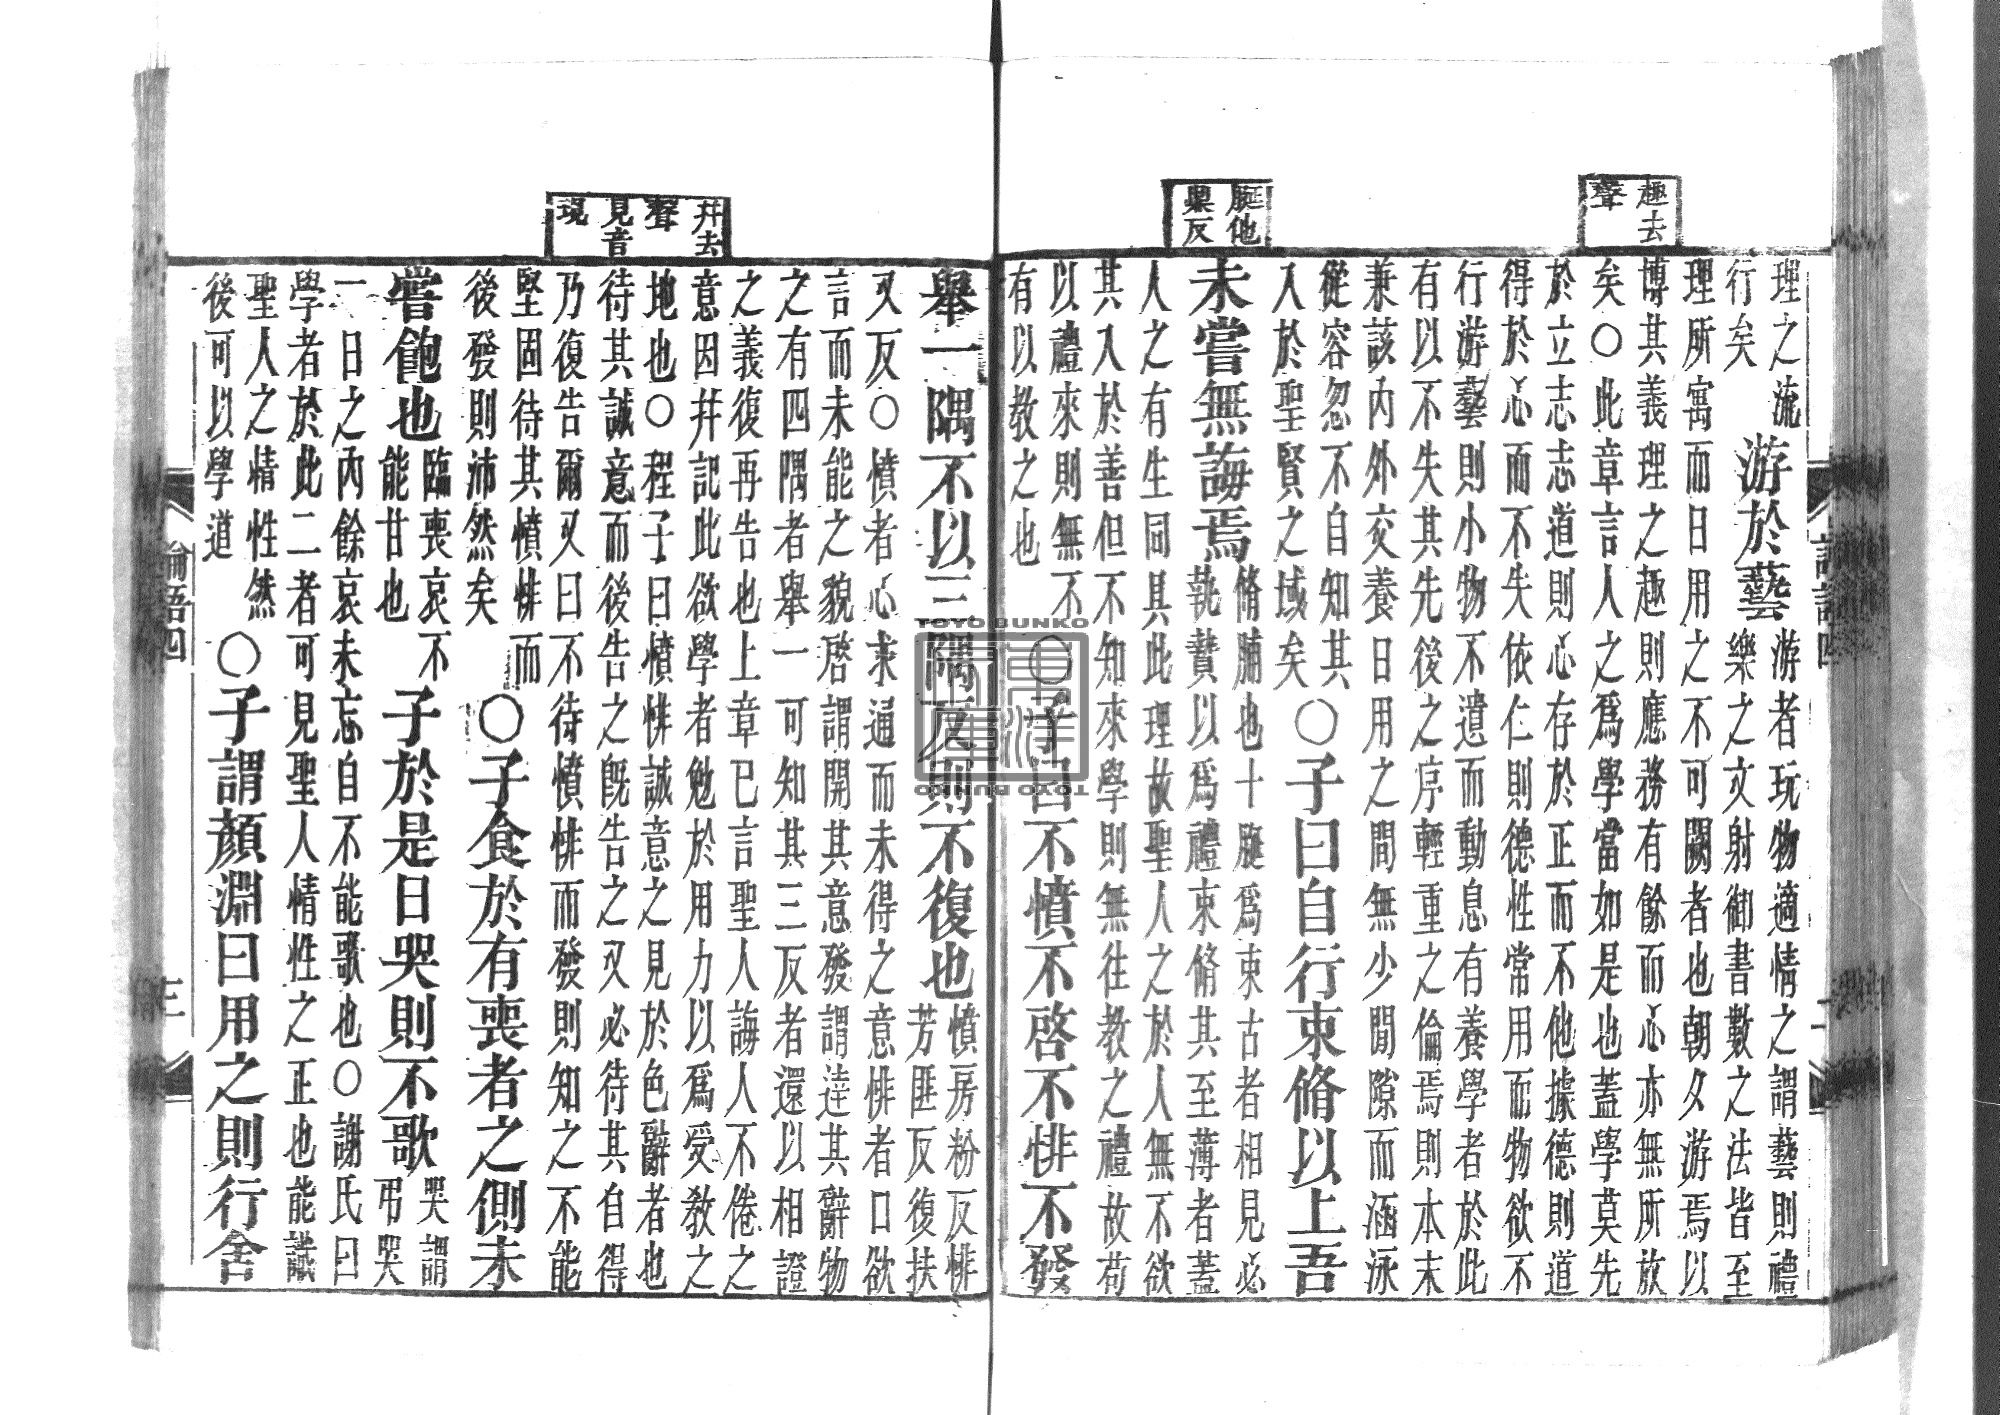 趣去
聲
脡他
鼎反
理之流
行矣
游於藝
游者玩物適情之謂藝則禮
樂之文射御書數之法皆至
理所寓而日用之不可闕者也朝夕游焉以
博其義理之趣則應務有餘而心亦無所放
矣○此章言人之爲學當如是也蓋學莫先
於立志志道則心存於正而不他據德則道
得於心而不失依仁則德性常用而物欲不
行游藝則小物不遺而動息有養學者於此
有以不失其先後之序輕重之倫焉則本末
兼該內外交養日用之間無少閒隙而涵泳
從容忽不自知其
入於聖賢之域矣
○子曰自行束脩以上吾
未嘗無誨焉
脩脯也十脡爲束古者相見必
執贄以爲禮束脩其至薄者蓋
人之有生同具此理故聖人之於人無不欲
其入於善但不知來學則無往教之禮故苟
以禮來則無不
有以教之也
○子曰不憤不啓不悱不發
幷去
聲
見音
現
舉一隅不以三隅反則不復也
憤房粉反悱
芳匪反復扶
又反○憤者心求通而未得之意悱者口欲
言而未能之貌啓謂開其意發謂達其辭物
之有四隅者舉一可知其三反者還以相證
之義復再告也上章已言聖人誨人不倦之
意因幷記此欲學者勉於用力以爲受教之
地也○程子曰憤悱誠意之見於色辭者也
待其誠意而後告之旣告之又必待其自得
乃復告爾又曰不待憤悱而發則知之不能
堅固待其憤悱而
後發則沛然矣
○子食於有喪者之側未
嘗飽也
臨喪哀不
能甘也
子於是日哭則不歌
哭謂
弔哭
一日之內餘哀未忘自不能歌也○謝氏曰
學者於此二者可見聖人情性之正也能識
聖人之情性然
後可以學道
○子謂顏淵曰用之則行舍
論語四
三
TOYO BUNKO
東洋文庫
TOYO BUNKO